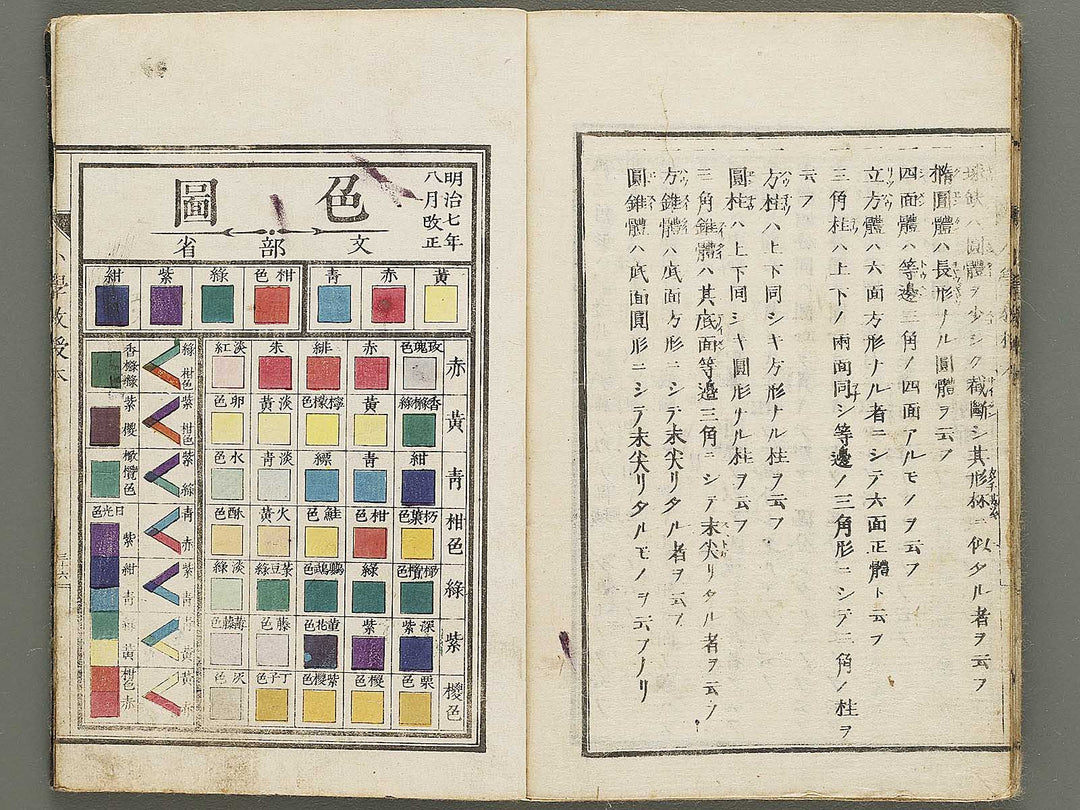 球缺ハ圓體ヲ少シク截斷シ其形杯ニ似タル者ヲ云フ
橢圓體ハ長形ナル圓體ヲ云フ
四面體ハ等邊三角ノ四面アルモノヲ云フ
立方體ハ六面方形ナル者ニシテ六面正體ト云フ
三角柱ハ上下ノ兩面同シ等邊ノ三角形ニシテ三角ノ柱ヲ
云フ
方柱ハ上下同シキ方形ナル柱ヲ云フ
圓柱ハ上下同シキ圓形ナル柱ヲ云フ
三角錐體ハ其底面等邊三角ニシテ末尖リタル者ヲ云フ
方錐體ハ底面方形ニシテ末尖リタル者ヲ云フ
圓錐體ハ底面圓形ニシテ末尖リタルモノヲ云フナリ
明治七年
八月改正
色圖
文部省
黃 赤 靑 柑色 綠 紫 紺
赤 玫瑰色 赤 緋 朱 淡紅
黃 香櫞綠 黃 檸檬色 淡黃 卵色
靑 紺 靑 縹 淡靑 水色
柑色 朽葉色 柑色 鮭色 火黃 酥色
綠 橄欖色 綠 鸚鵡色 菉豆綠 淡綠
紫 深紫 紫 菫花色 藤色 薄藤色
㯃色 栗色 㯃色 紫㯃色 丁子色 灰色
綠 柑色
紫 柑色
紫 綠
靑 赤
紫 靑
靑 黃
黃 赤
香櫞綠
紫㯃
橄欖色
日光色
紫
紺
靑
綠
黃
柑色
赤
小學敎授本
三十六